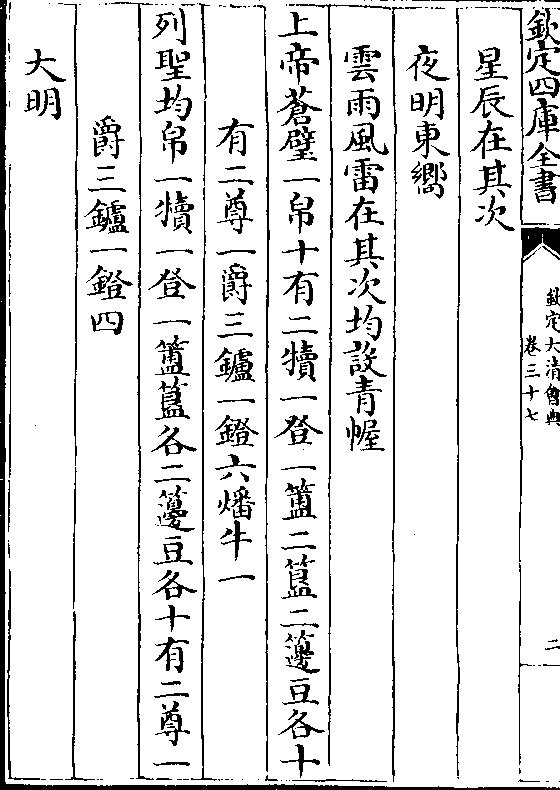 欽定四庫全書
欽定大清會典
卷三十七
二
星辰在其次
夜明東嚮
雲雨風雷在其次均設青幄
上帝蒼璧一帛十有二犢一登一簠二簋二籩豆各十
有二尊一爵三鑪一鐙六燔牛一
列聖均帛一犢一登一簠簋各二籩豆各十有二尊一
爵三鑪一鐙四
大明